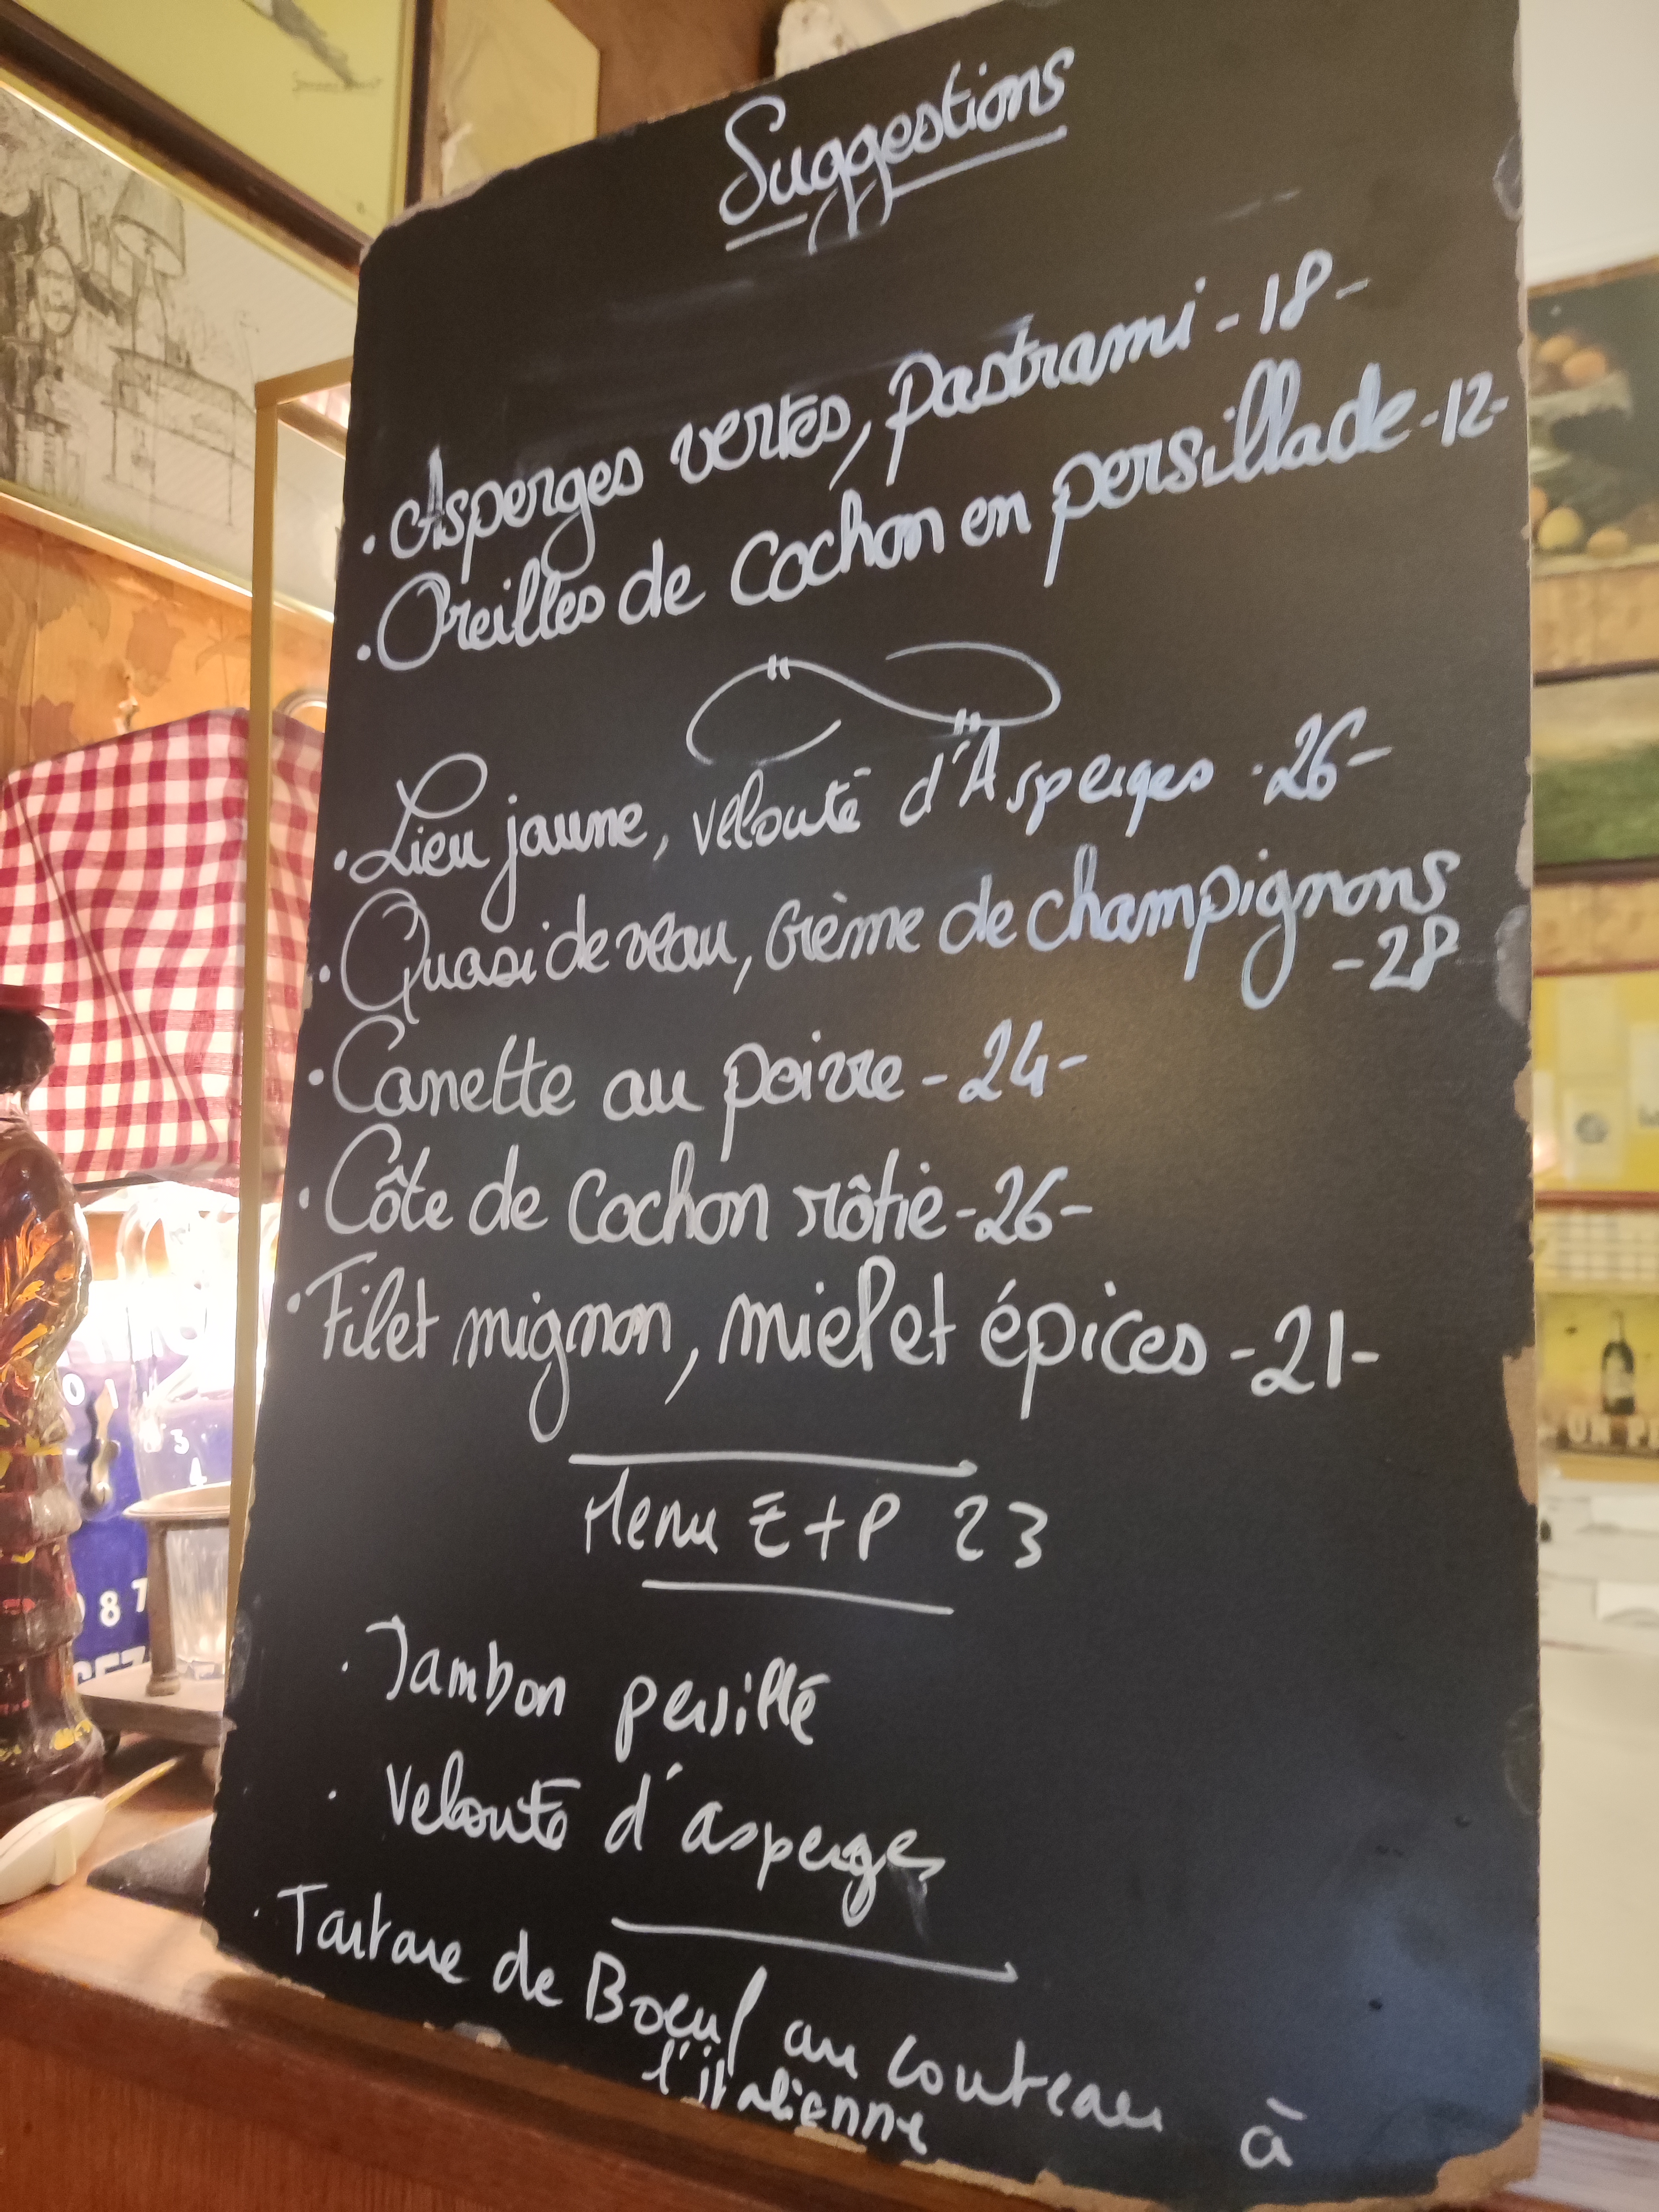 Suggestions
. Asperges vertes, pastrami - 18 -
. Oreilles de Cochon en persillade - 12 -
. Lieu jaune, velouté d'Asperges . 26 -
. Quasi de veau, crème de champignons
- 28
. Canette au poivre - 24 -
. Côte de Cochon rôtie - 26 -
. Filet mignon, miel et épices - 21 -
Menu E + P 23
. Jambon persillé
. Velouté d'asperges
. Tartare de Boeuf au couteau à
l'italienne
0 1
3
4
8 7
UN PI